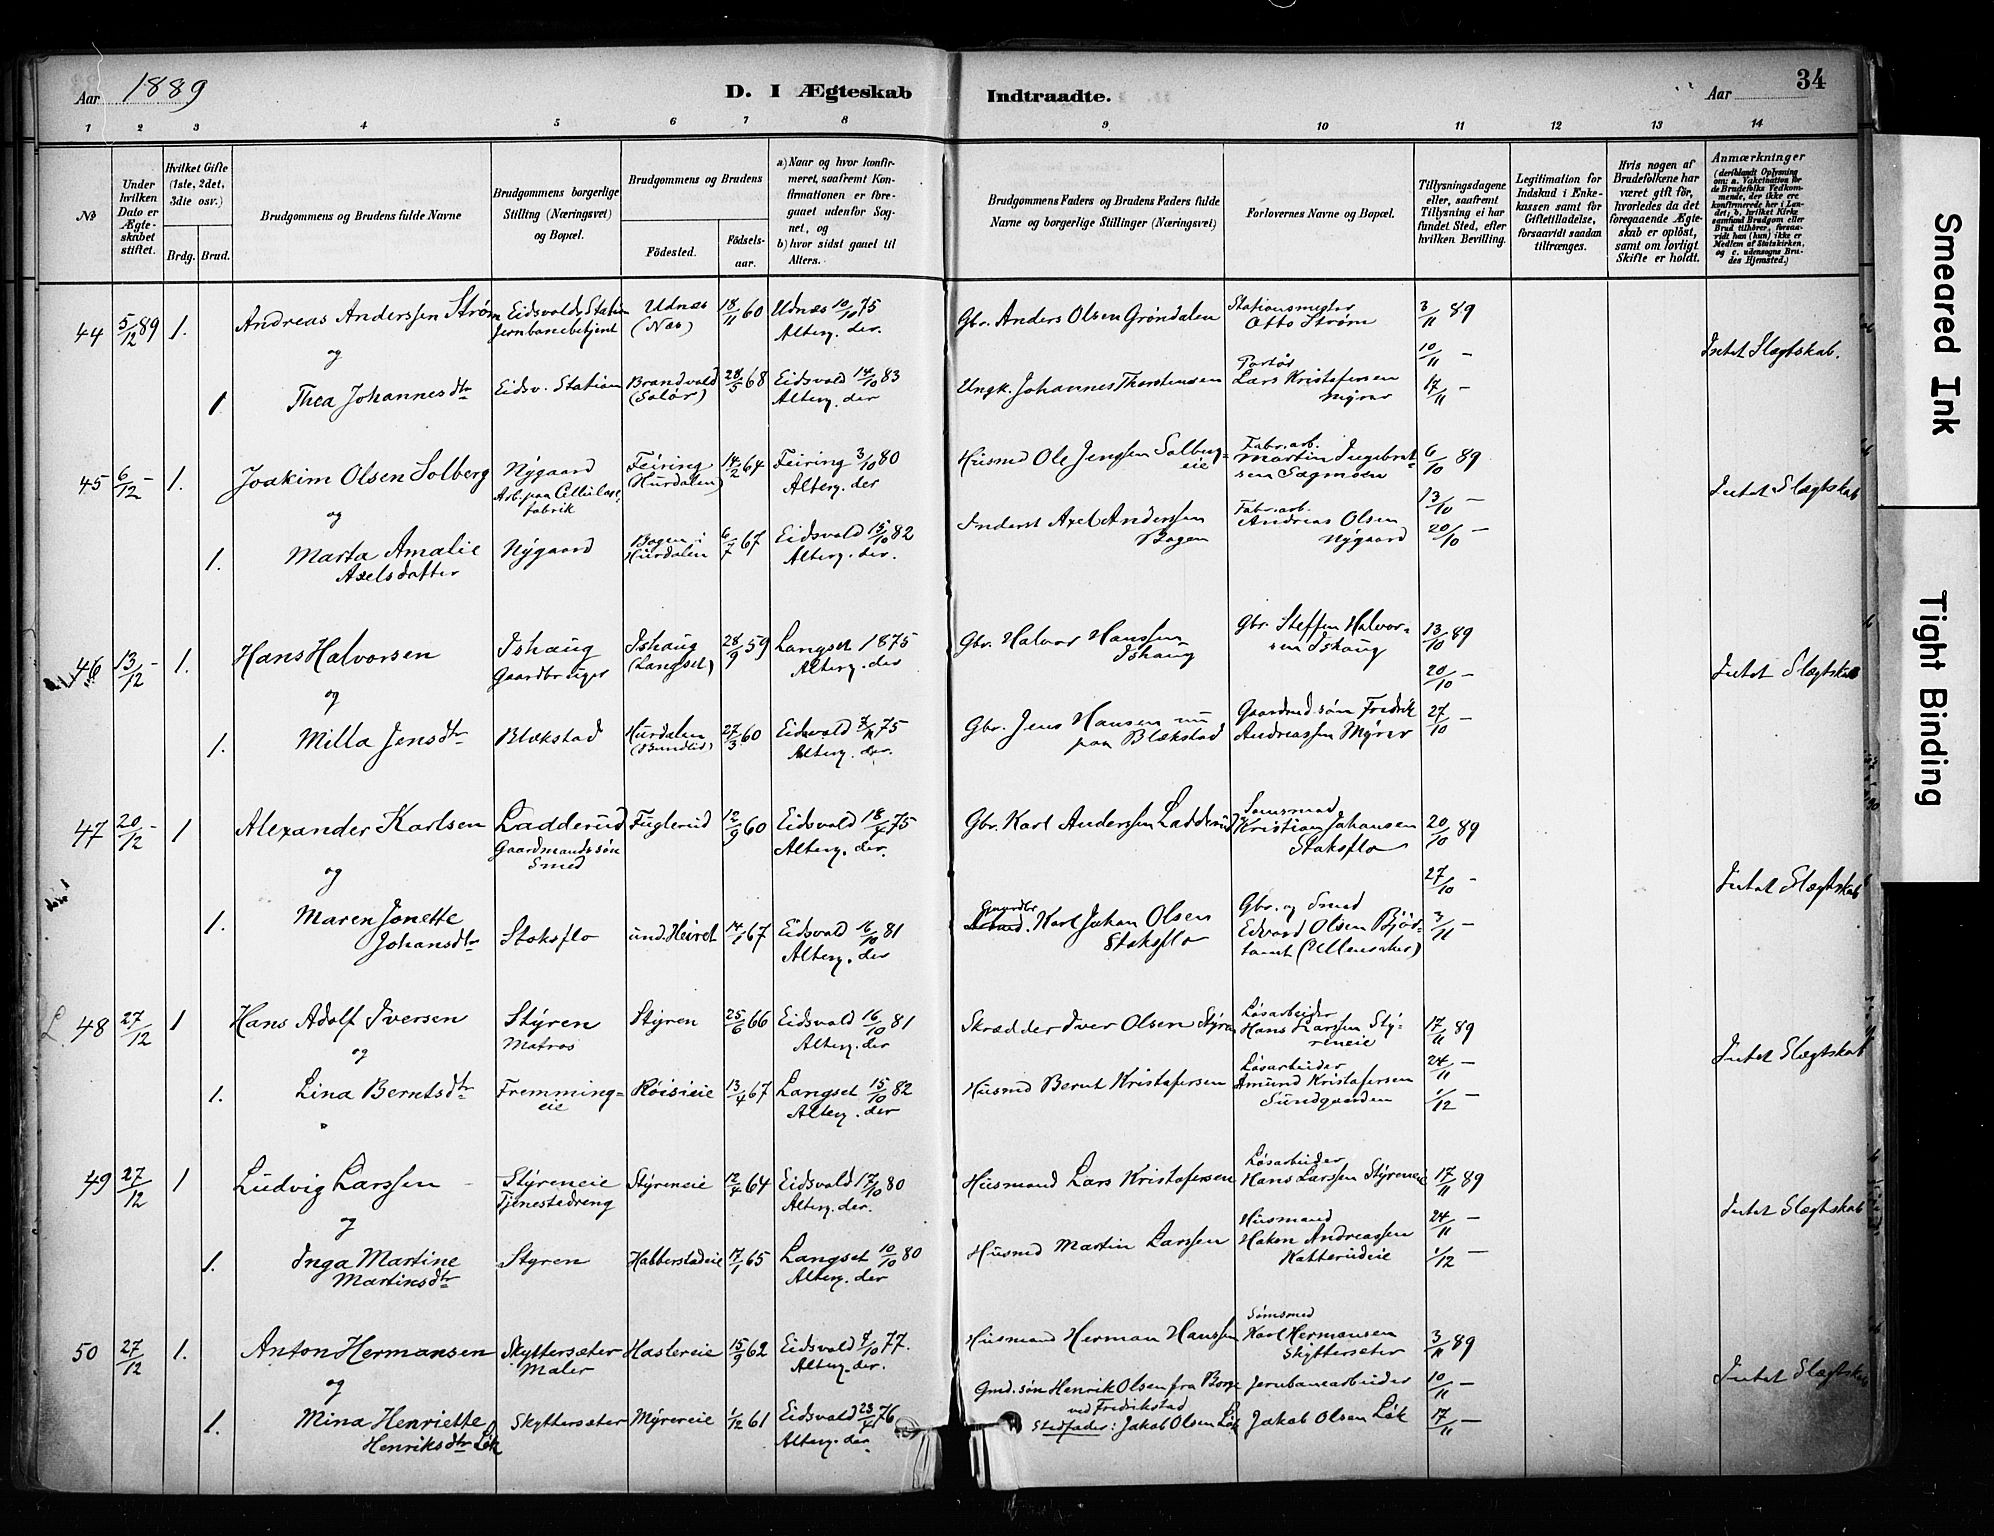 Aar 1889
D. I Ægteskab Indtraadte.
Aar
34
1 2 3 4 5 6 7 8 9 10 11 12 13 14
No
Under hvilken Dato er Ægteskabet stiftet.
Hvilket Gifte (1ste, 2det, 3dte osv.)
Brdg. Brud.
Brudgommens og Brudens fulde Navne
Brudgommens borgerlige Stilling (Næringsvei) og Bopæl.
Brudgommens og Brudens
Fødested.
Fødselsaar.
a) Naar og hvor konfirmeret, saafremt Konfirmationen er foregaaet udenfor Sognet, og
b) hvor sidst gaaet til Alters.
Brudgommens Faders og Brudens Faders fulde Navne og borgerlige Stillinger (Næringsvei)
Forlovernes Navne og Bopæl.
Tillysningsdagene eller, saafremt Tillysning ei har fundet Sted, efter hvilken Bevilling.
Legitimation for Indskud i Enkekassen samt for Giftetilladelse, forsaavidt saadan tiltrænges.
Hvis nogen af Brudefolkene har været gift før, hvorledes da det foregaaende Ægteskab er opløst, samt om lovligt Skifte er holdt.
Anmærkninger (deriblandt Oplysning om: a. Vakcination for de Brudefolks Vedkommende, der ikke ere konfirmerede her i Landet; b. hvilket Kirkesamfund Brudgom eller Brud tilhører, forsaavidt han (hun) ikke er Medlem af Statskirken, og c. udensogns Brudes Hjemsted.)
44 5/12 89 1. Andreas Anderssen Strøm Eidsvolds Station Jernbanebetjent Udnæs (Næs) 18/11 60 Udnæs 10/10 75 Alterg. der. Gbr. Anders Olsen Grøndalen Stationsmester Otto Strøm 3/11 89
og 10/11 - Intet Slægtskab.
1. Thea Johannesdtr Eidsv. Station Brandvold (Solør) 28/5 68 Eidsvold 14/10 83 Alterg. der Ungk. Johannes Thorstensen Portør Lars Kristofersen Myrer 17/11 -
45 6/12 - 1. Joakim Olsen Solberg Nygaard Arb. paa Cellulosefabrik Feiring (Hurdalen) 14/2 64 Feiring 3/10 80 Alterg. der Husmd Ole Jensen Solbergeie Fabr. arb. Martin Ingebretsen Sagmoen 6/10 89
og 13/10 - Intet Slægtskab
1. Marta Amalie Axelsdatter Nygaard Bogen i Hurdalen 6/7 67 Eidsvold 15/10 82 Alterg. der. Inderst Axel Anderssen Bogen Fabr. arb. Andreas Olsen Nygaard 20/10 -
46 13/12 - 1. Hans Halvorsen Ishaug Gaardbruger Ishaug (Langset) 28/9 59 Langset 1875 Alterg. der Gbr. Halvor Hanssen Ishaug Gbr. Steffen Halvorsen Ishaug 13/10 89
og 20/10 - Intet Slægtskab
1. Milla Jensdtr Blækstad Hurdalen 27/3 60 Eidsvold 75 Alterg. der. Gbr. Jens Hansen nu paa Blækstad Gaardmd. søn Fredrik Andreassen Myrer 27/10 -
47 20/12 - 1 Alexander Karlsen Ladderud Gaardmandssøn Smed Fuglerud 12/9 60 Eidsvold 18/4 75 Alterg. der. Gbr. Karl Anderssen Ladderud Kristian Johansen Staksflo 20/10 89
og 27/10 - Intet Slægtskab
1. Maren Jonette Johansdtr Staksflo und. Heiret 14/1 67 Eidsvold 16/10 81 Alterg. der Gaardbr. Karl Johan Olsen Staksflo Gbr. og Smed Edvard Olsen Bjørtomt (Ullensaker) 3/11 -
L. 48 27/12 1 Hans Adolf Iversen Styren Matros Styren 25/6 66 Eidsvold 16/10 81 Alterg. der Skrædder Iver Olsen Styren Løsarbeider Hans Larssen Styreneie 17/11 89
og 24/11 - Intet Slægtskab
1. Lina Berntsdtr Fremmingeie Røisieie 13/4 67 Langset 15/10 82 Alterg. der Husmd Bernt Kristofersen Løsarbeider Amund Kristofersen Sundgaarden 1/12 -
49 27/12 1 Ludvig Larssen Styreneie Tjenestedreng Styreneie 12/4 64 Eidsvold 17/10 80 Alterg. der. Husmand Lars Kristofersen Løsarbeider Hans Larssen Styreneie 17/11 89
og 24/11 - Intet Slægtskab
1. Inga Martine Martinsdtr Styren Habberstadeie 17/1 65 Langset 10/10 80 Alterg. der Husmd Martin Larssen Husmand Haken Andreassen Katterudeie 1/12 -
50 27/12 1. Anton Hermansen Skyttersæter Maler Haslereie 15/9 62 Eidsvold 7/10 77. Alterg. der. Husmand Herman Hanssen Sømsmed Karl Hermansen Skyttersæter 3/11 89
og 10/11 - Intet Slægtskab
1. Mina Henriette Henriksdtr Løk Skyttersæter Myrereie 1/12 61 Eidsvold 23/4 76 Alterg. der. Gmd. søn Henrik Olsen fra Borge ved Fredrikstad Stedfader: Jakob Olsen Løk Jernbanearbeider Jakob Olsen Løk 17/11 -
Smeared Ink
Tight Binding